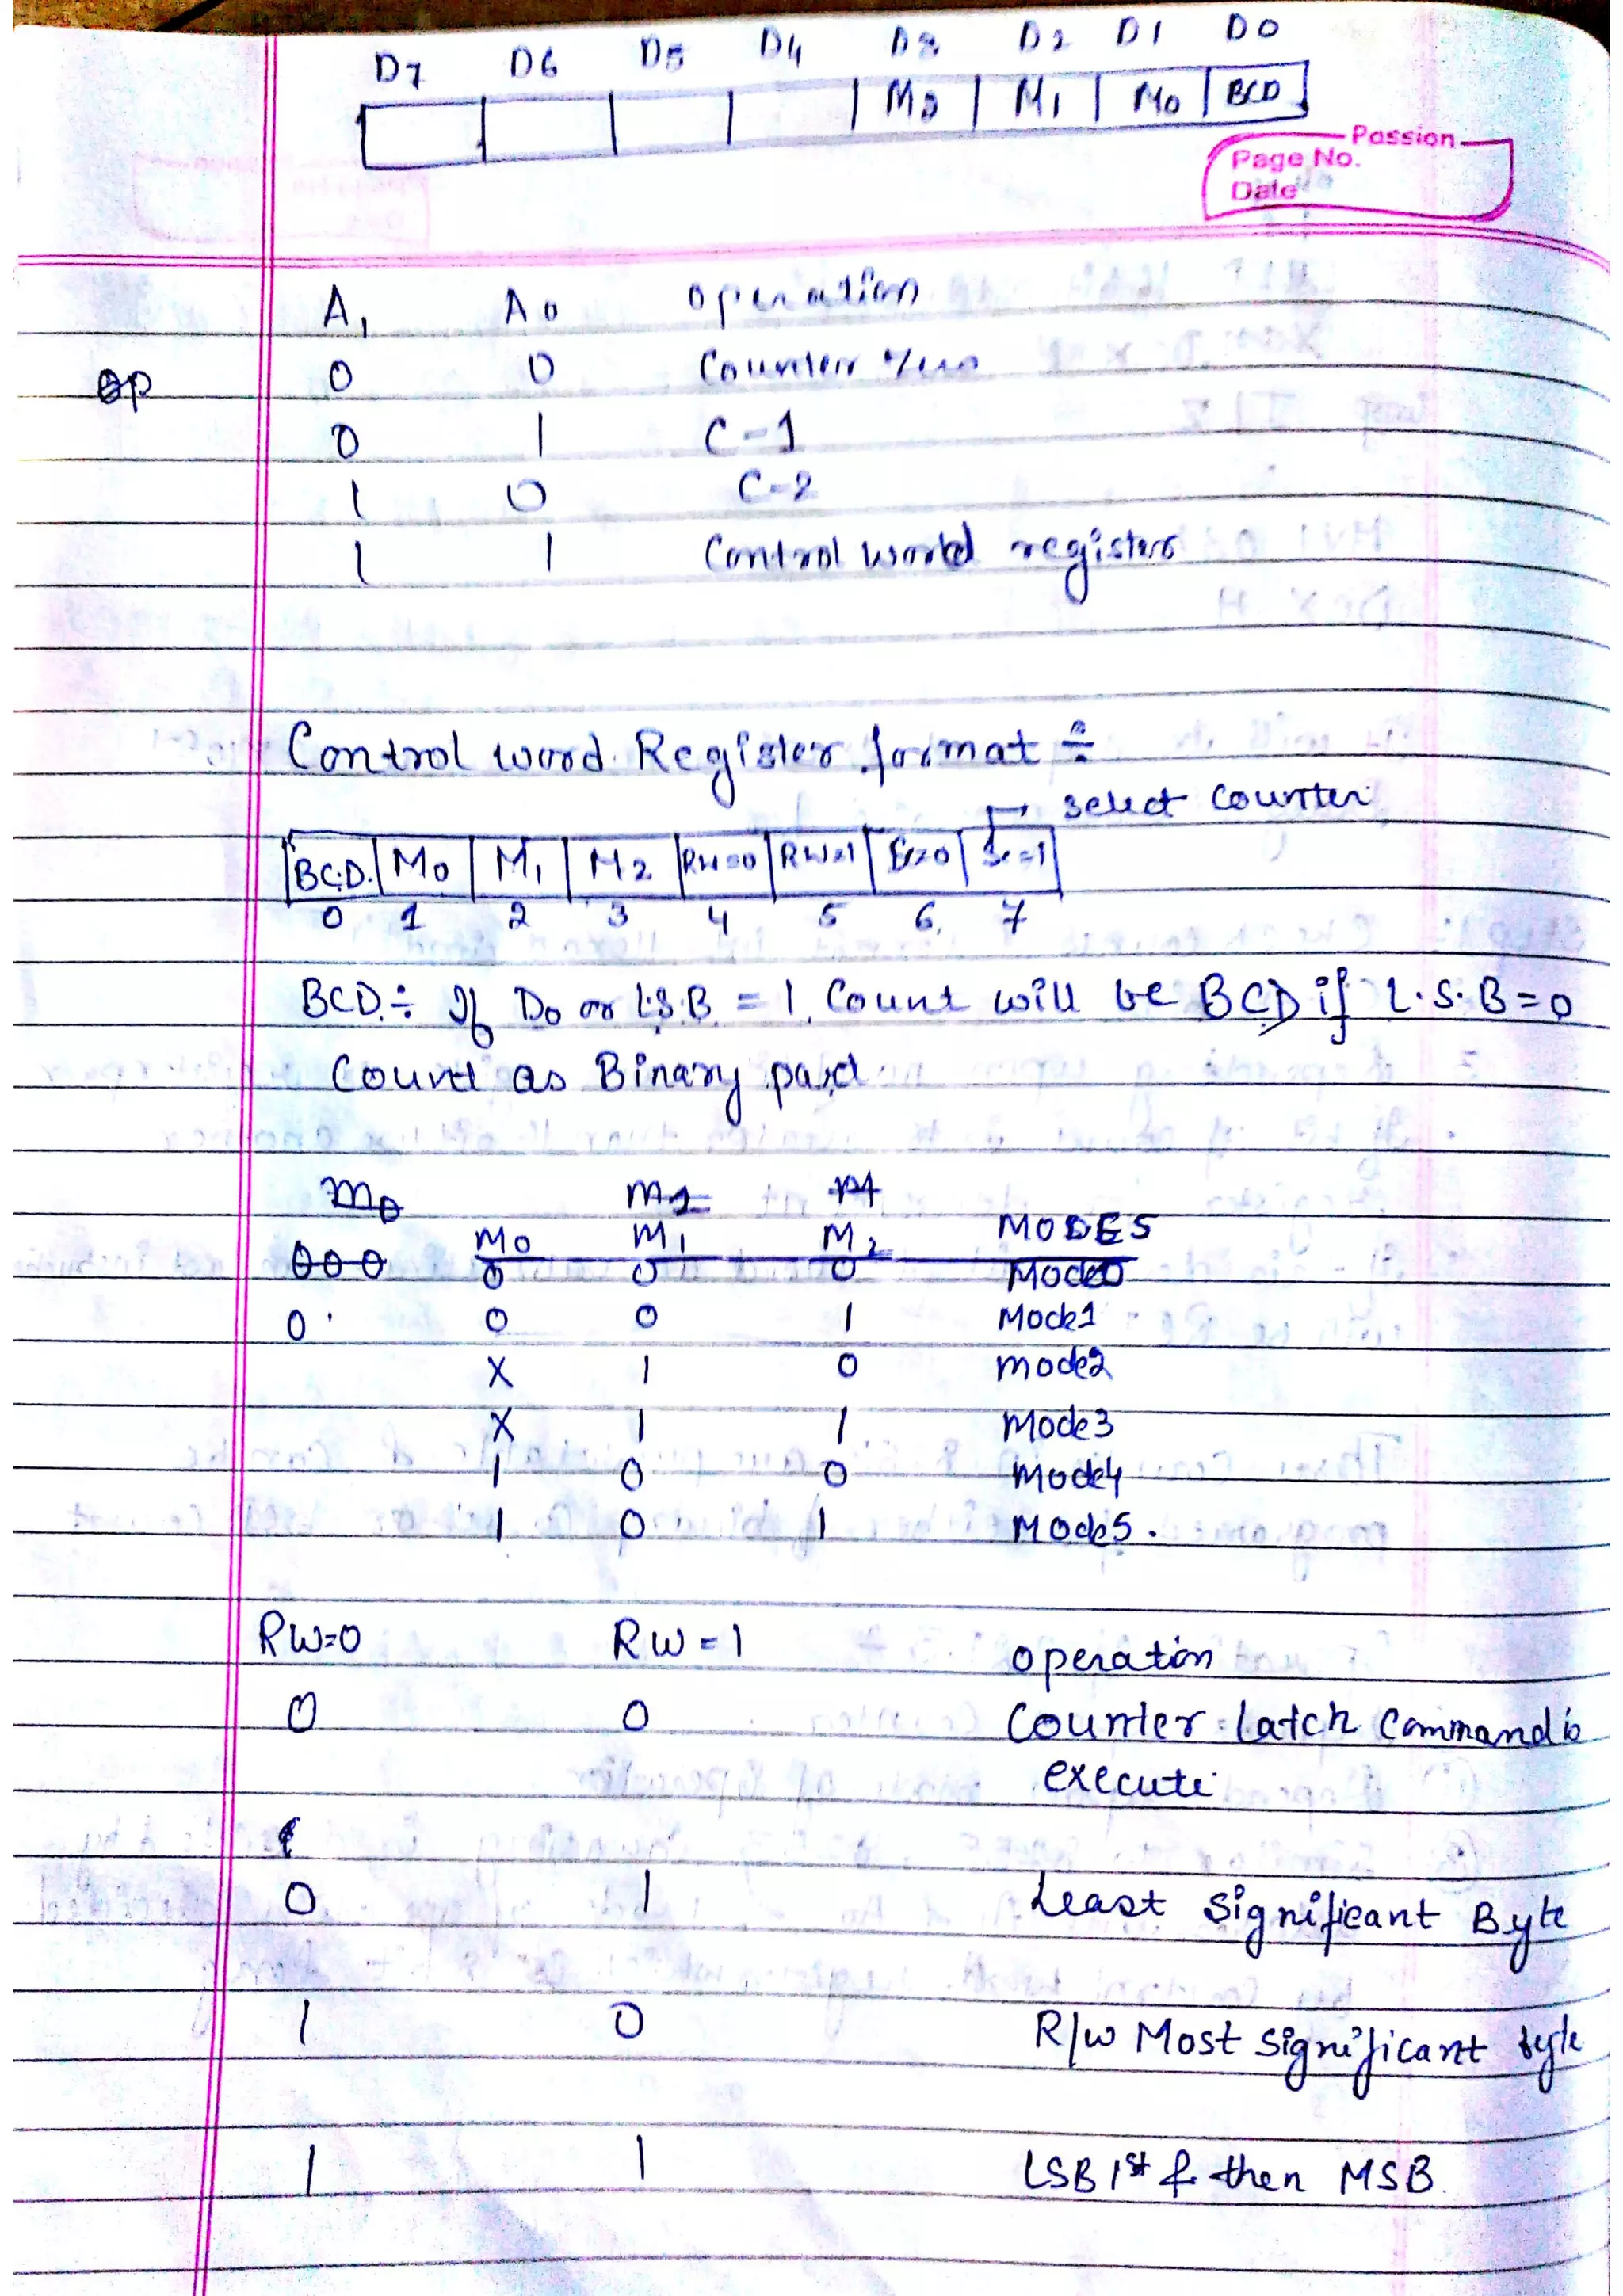 D7 D6 D5 D4 D3 D2 D1 D0
M2 M1 M0 BCD
Passion
Page No.
Date
A1 A0 operation
0 0 Counter
0 1 C-1
1 0 C-2
1 1 Control world register
Control word Register format ÷
→ select counter
BC.D. M0 M1 M2 RW=0 RW=1 Sc=0 Sc=1
0 1 2 3 4 5 6 7
BCD ÷ If D0 or L.S.B. = 1, Count will be BCD if L.S.B = 0
Count as Binary
M0 M1 M2 MODES
0 0 0 Mode0
0 0 0 1 Mode1
X 1 0 mode2
X 1 1 Mode3
1 0 0 Mode4
1 0 1 Mode5.
RW=0 RW=1 operation
0 0 Counter Latch Command is
execute
0 1 Least Significant Byte
1 0 R/W Most Significant byte
1 1 LSB 1st & then MSB